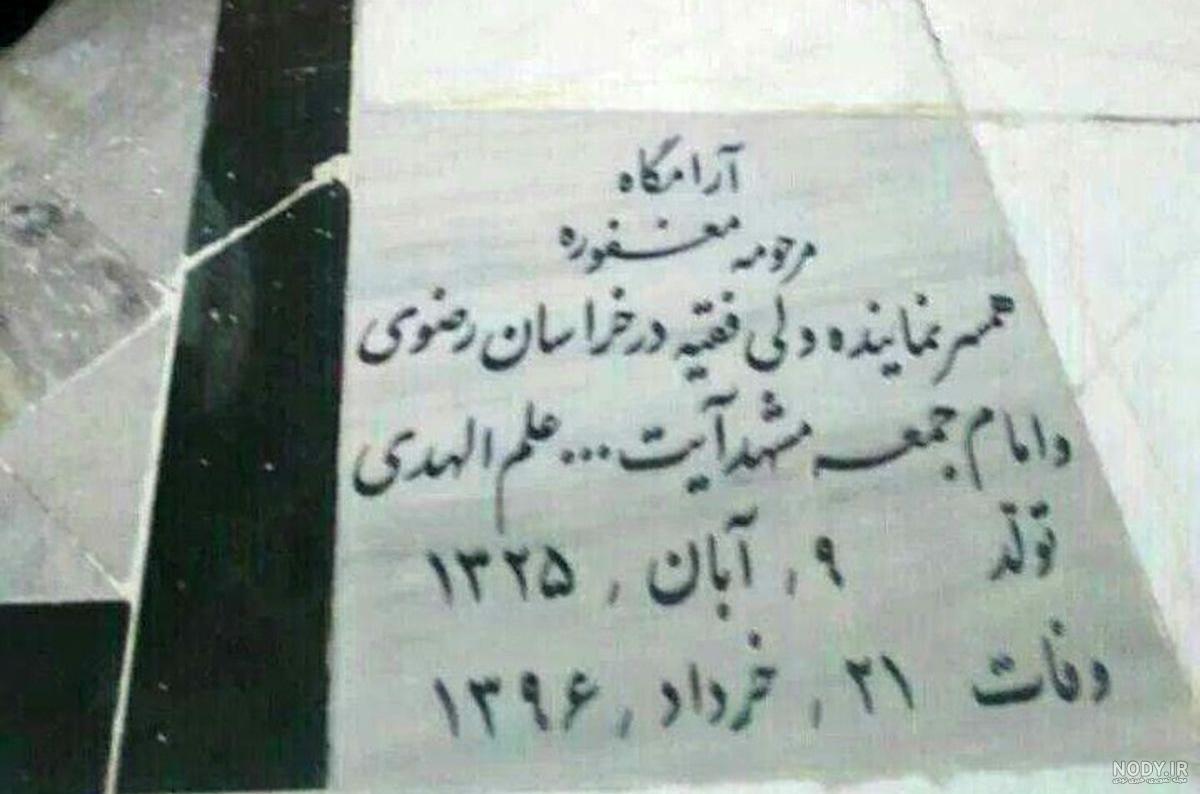 آرامگاه
مرحومه مغفوره
همسر نماینده ولی فقیه در خراسان رضوی
و امام جمعه مشهد آیت ... علم الهدی
تولد ۹ , آبان , ۱۳۲۵
وفات ۲۱ , خرداد , ۱۳۹۶
NODY.IR